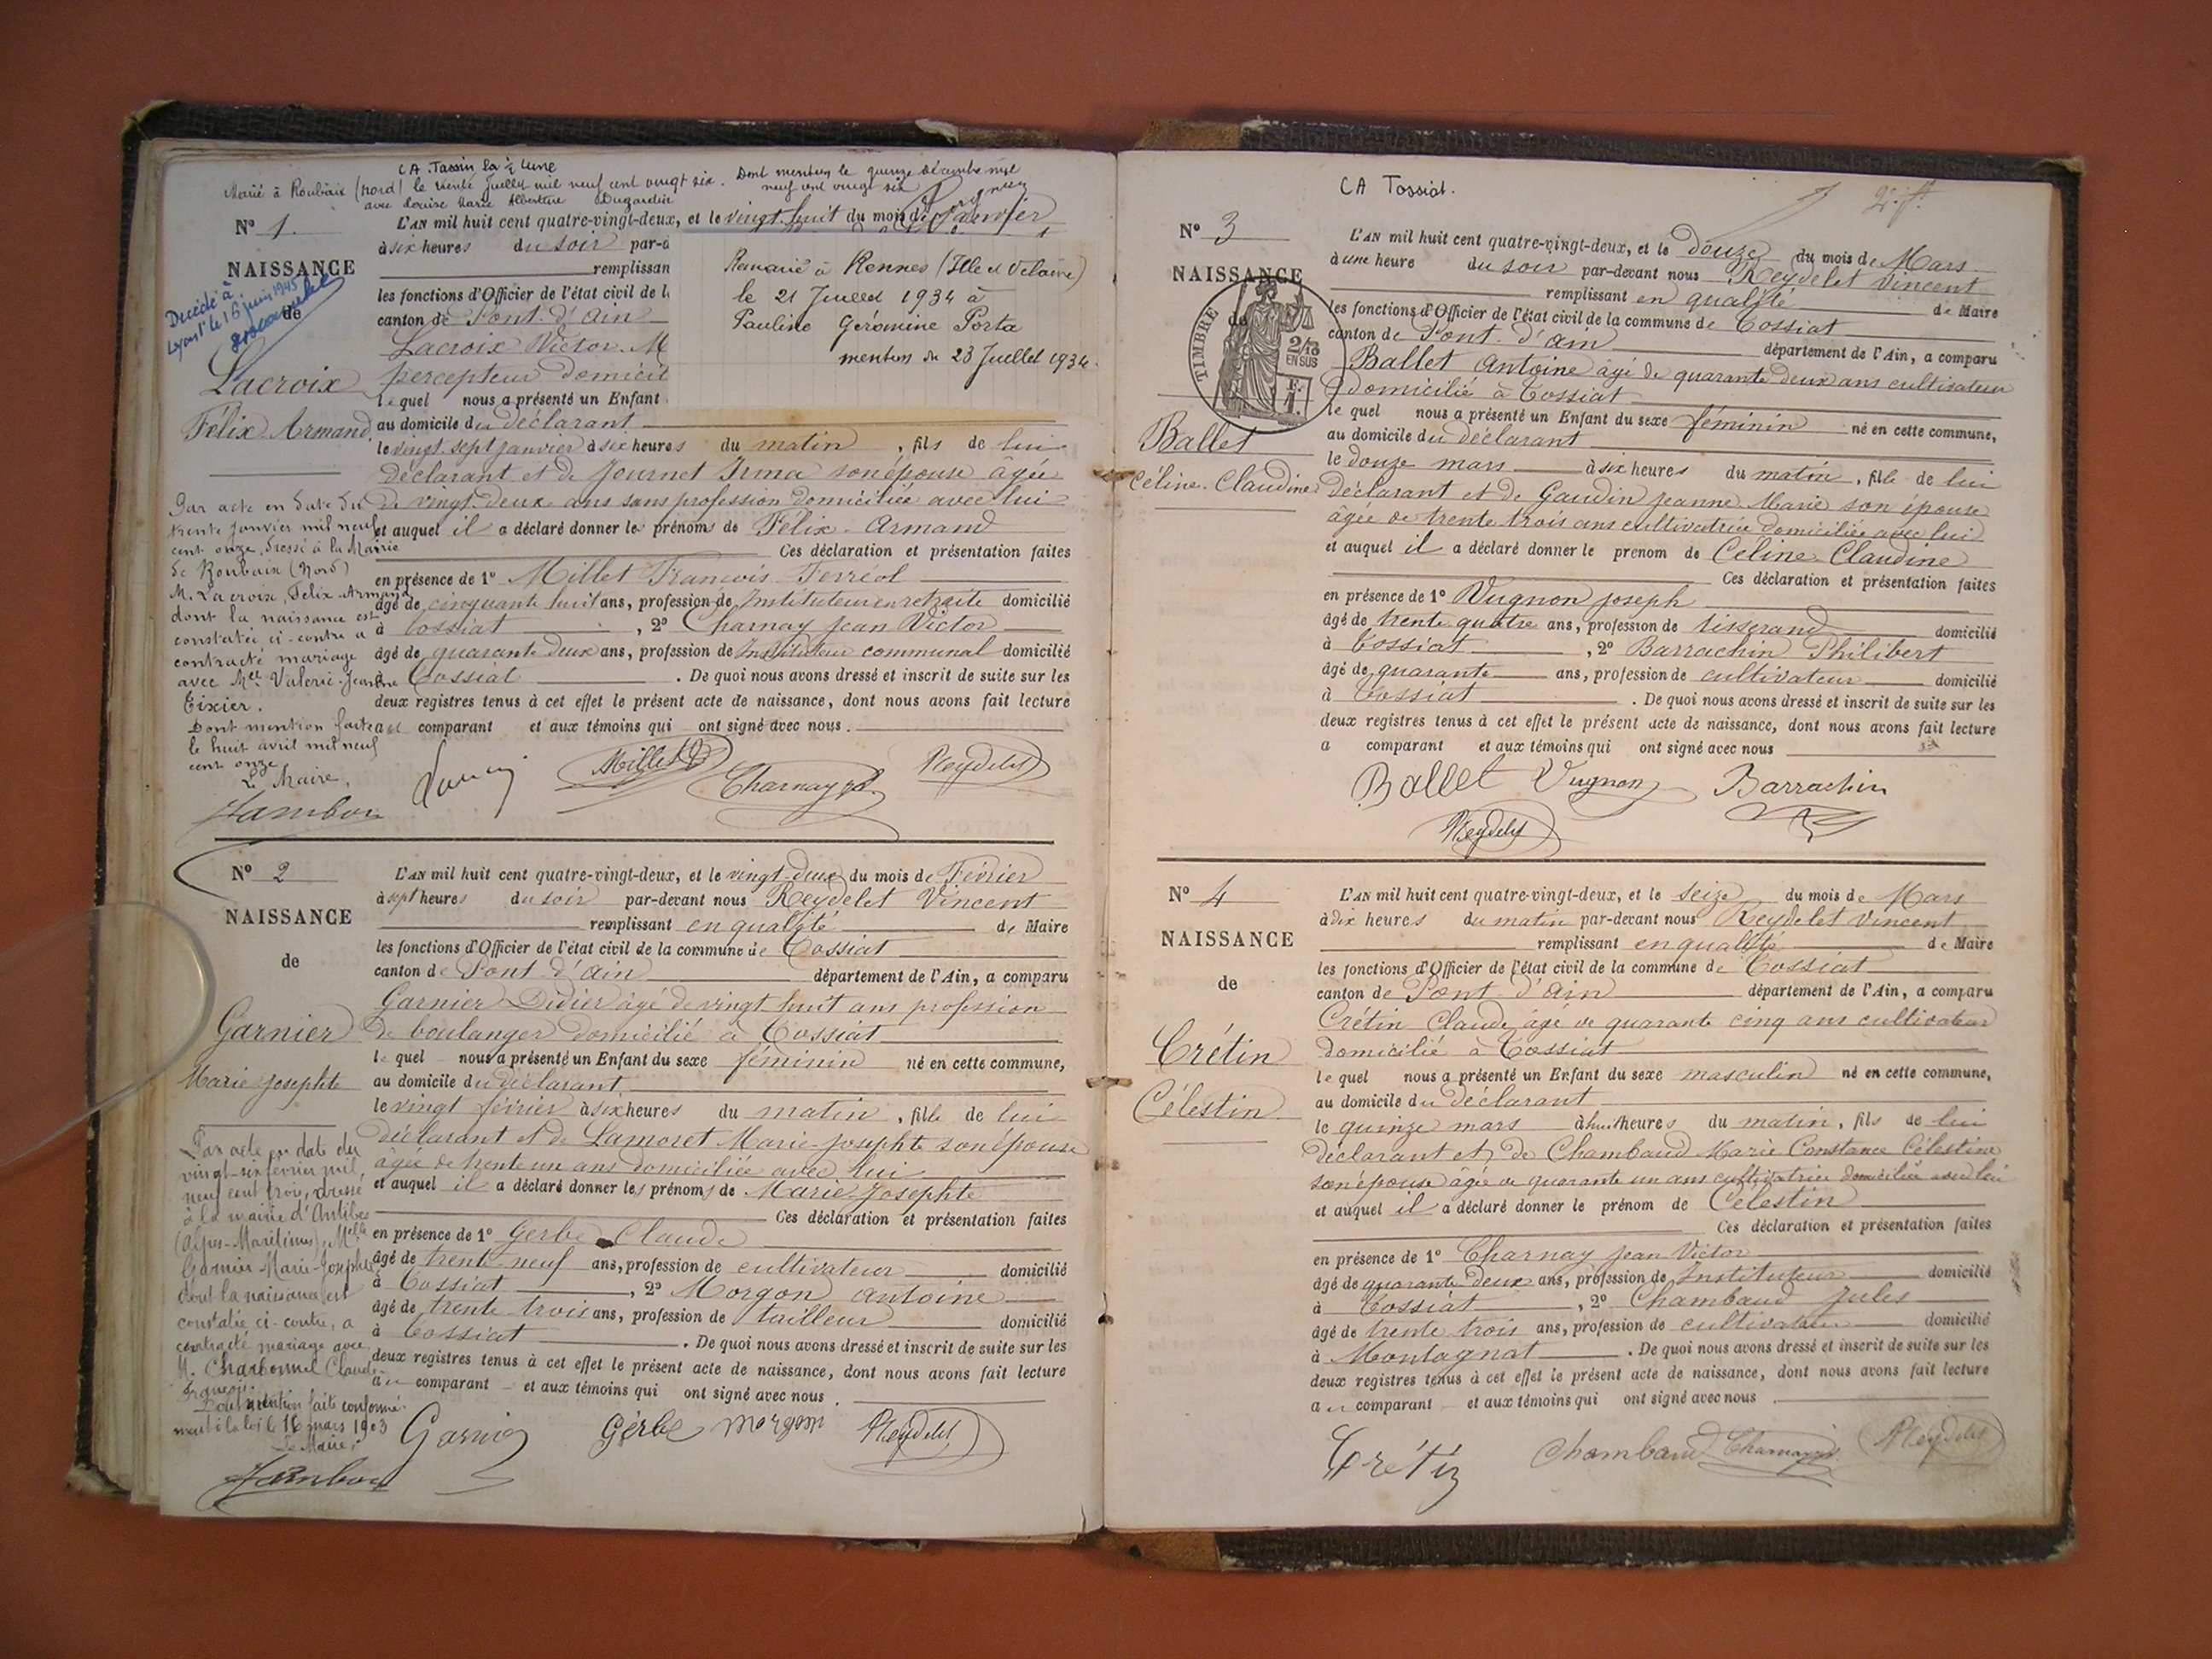 CA Tassin la ½ Lune
Marié à Roubaix (Nord) le trente Juillet mil neuf cent vingt six. Dont mention le quinze décembre mil
avec Louise Marie Albertine Dugardin
neuf cent vingt six
N° 1.
NAISSANCE
de
Décédé à
Lyon 1er le 16 juin 1945
Lacroix
Félix Armand
Par acte en date du
trente janvier mil neuf
cent onze, dressé à la Mairie
de Roubaix (Nord)
M. Lacroix, Félix-Armand
dont la naissance est
constatée ci-contre a
contracté mariage
avec Melle Valérie-Jeanne
Tixier.
Dont mention faite
le huit avril mil neuf
cent onze
Le Maire,
Jambon
L'AN mil huit cent quatre-vingt-deux, et le vingt huit du mois de Janvier
à six heures du soir par-d
remplissan
les fonctions d'Officier de l'état civil de l
canton de Pont d'Ain
Lacroix Victor M
percepteur domicil
le quel nous a présenté un Enfant
Remarié à Rennes (Ille et Vilaine)
le 21 Juillet 1934 à
Pauline Géromine Porta
mention du 23 Juillet 1934.
au domicile du déclarant
le vingt sept janvier à six heures du matin, fils de lui
déclarant et de Journet Irma son épouse âgée
de vingt deux ans sans profession domiciliée avec lui
et auquel il a déclaré donner les prénoms de Félix-Armand
Ces déclaration et présentation faites
en présence de 1° Millet François Ferréol
âgé de cinquante huit ans, profession de Instituteur en retraite domicilié
à Tossiat, 2° Charnay Jean Victor
âgé de quarante deux ans, profession de Instituteur communal domicilié
à Tossiat. De quoi nous avons dressé et inscrit de suite sur les
deux registres tenus à cet effet le présent acte de naissance, dont nous avons fait lecture
au comparant et aux témoins qui ont signé avec nous.
Millet Charnay Reydelet
N° 2
NAISSANCE
de
Garnier
Marie Josephte
Par acte en date du
vingt-six février mil
neuf cent trois, dressé
à la mairie d'Antibes
(Alpes-Maritimes), Melle
Garnier Marie-Josephte
dont la naissance est
constatée ci-contre, a
contracté mariage avec
M. Charbonnel Claude
François.
Dont mention faite conformé-
ment à la loi le 16 mars 1903
Le Maire,
Jambon
L'AN mil huit cent quatre-vingt-deux, et le vingt-deux du mois de Février
à sept heures du soir par-devant nous Reydelet Vincent
remplissant en qualité de Maire
les fonctions d'Officier de l'état civil de la commune de Tossiat
canton de Pont d'Ain département de l'Ain, a comparu
Garnier Didier âgé de vingt huit ans profession
de boulanger domicilié à Tossiat
le quel nous a présenté un Enfant du sexe féminin né en cette commune,
au domicile du déclarant
le vingt février à six heures du matin, fille de lui
déclarant et de Lamoret Marie-Josephte son épouse
âgée de trente un ans domiciliée avec lui
et auquel il a déclaré donner les prénoms de Marie Josephte
Ces déclaration et présentation faites
en présence de 1° Gerbe Claude
âgé de trente-neuf ans, profession de cultivateur domicilié
à Tossiat, 2° Morgon Antoine
âgé de trente trois ans, profession de tailleur domicilié
à Tossiat. De quoi nous avons dressé et inscrit de suite sur les
deux registres tenus à cet effet le présent acte de naissance, dont nous avons fait lecture
au comparant et aux témoins qui ont signé avec nous.
Garnier Gerbe morgon Reydelet
CA Tossiat.
N° 3
NAISSANCE
de
TIMBRE
2/10
EN SUS
Ballet
Céline-Claudine
L'AN mil huit cent quatre-vingt-deux, et le douze du mois de Mars
à une heure du soir par-devant nous Reydelet Vincent
remplissant en qualité de Maire
les fonctions d'Officier de l'état civil de la commune de Tossiat
canton de Pont d'Ain département de l'Ain, a comparu
Ballet Antoine âgé de quarante deux ans cultivateur
domicilié à Tossiat
le quel nous a présenté un Enfant du sexe féminin né en cette commune,
au domicile du déclarant
le douze mars à six heures du matin, fille de lui
déclarant et de Gaudin Jeanne Marie son épouse
âgée de trente trois ans cultivatrice domiciliée avec lui
et auquel il a déclaré donner le prénom de Céline Claudine
Ces déclaration et présentation faites
en présence de 1° Vugnon Joseph
âgé de trente quatre ans, profession de tisserand domicilié
à Tossiat, 2° Barrachin Philibert
âgé de quarante ans, profession de cultivateur domicilié
à Tossiat. De quoi nous avons dressé et inscrit de suite sur les
deux registres tenus à cet effet le présent acte de naissance, dont nous avons fait lecture
a comparant et aux témoins qui ont signé avec nous
Ballet Vugnon Barrachin
Reydelet
N° 4
NAISSANCE
de
Crétin
Célestin
L'AN mil huit cent quatre-vingt-deux, et le seize du mois de Mars
à dix heures du matin par-devant nous Reydelet Vincent
remplissant en qualité de Maire
les fonctions d'Officier de l'état civil de la commune de Tossiat
canton de Pont d'Ain département de l'Ain, a comparu
Crétin Claude âgé de quarante cinq ans cultivateur
domicilié à Tossiat
le quel nous a présenté un Enfant du sexe masculin né en cette commune,
au domicile du déclarant
le quinze mars à huit heures du matin, fils de lui
déclarant et de Chambaud Marie Constance Célestine
son épouse âgée de quarante un ans cultivatrice domiciliée avec lui
et auquel il a déclaré donner le prénom de Célestin
Ces déclaration et présentation faites
en présence de 1° Charnay Jean Victor
âgé de quarante deux ans, profession de Instituteur domicilié
à Tossiat, 2° Chambaud Jules
âgé de trente trois ans, profession de cultivateur domicilié
à Montagnat. De quoi nous avons dressé et inscrit de suite sur les
deux registres tenus à cet effet le présent acte de naissance, dont nous avons fait lecture
au comparant et aux témoins qui ont signé avec nous
Crétin Chambaud Charnay Reydelet